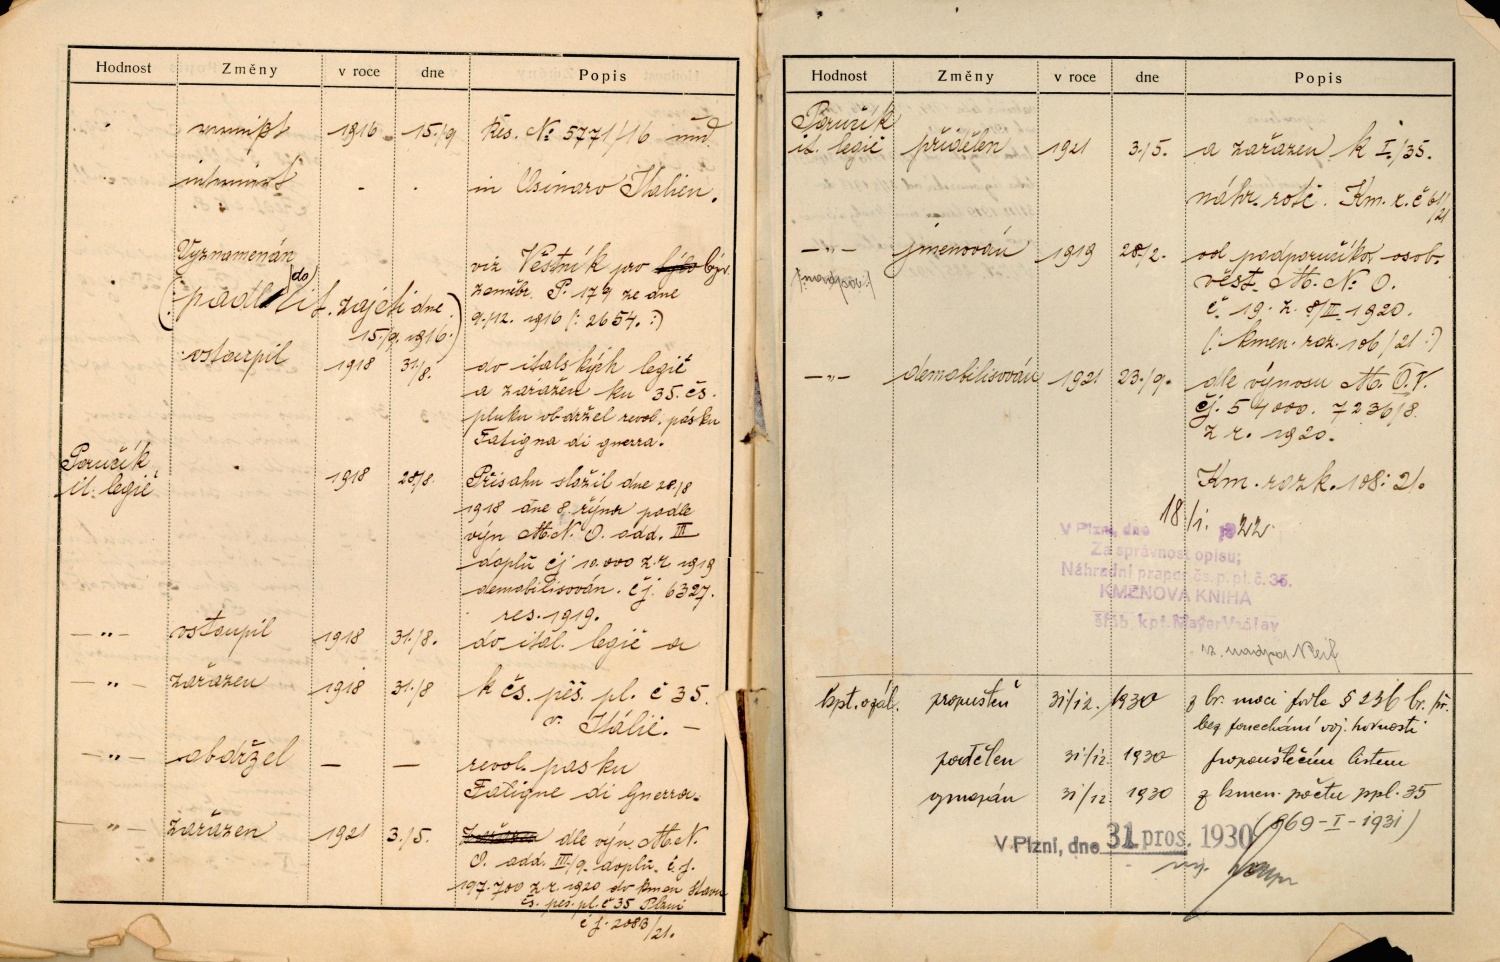 Hodnost Změny v roce dne Popis
vermißt 1916 15./9 Res. № 5771/16
interniert - . in Asinara Italien.
Vyznamenán viz Věstník pro
zaměstn. P. 179 ze dne
9./12. 1916 (: 2654. :)
(: padl do it. zajetí dne
15./9. 1916. :)
vstoupil 1918 31/8. do italských legií
a zařazen ku 35. čs.
pluku obdržel revol. pásku
Fatigna di guerra.
Poručík
it. legií 1918 28/8. Přísahu složil dne 28/8
1918 dne 8. října podle
výn. M. N. O. odd. III
doplň čj 10.000 z r 1919
demobilisován. čj. 6327.
res. 1919.
— „ — vstoupil 1918 31./8. do ital. legií a
— „ — zařazen 1918 31./8 k čs. pěš. pl. č 35.
v. Itálii. —
— „ — obdržel — — revol. pasku
Fatigne di Guerra.
— „ — zařazen 1921 3./5. dle výn. M. N.
O. odd. III/9. doplň. č. j.
197.700 z. r. 1920 do kmen. stavu
čs. pěš. pl. č 35 Plzni
č j. 2083/21.
Hodnost Změny v roce dne Popis
Poručík
it. legií přidělen 1921 3./5. a zařazen k I./35.
náhr. rotě. Km. r. č 61/21
— „ — jmenován 1919 28/2. od podporučíka osob.
věst. M. N. O.
č. 19. z. 8/III 1920.
(: kmen. roz. 106/21 :)
— „ — demobilisován 1921 23./9. dle výnosu M. O. V.
čj. 54000. 7236/8.
z r. 1920.
Km. rozk. 108: 21.
V Plzni, dne 18/I. 1922
Za správnost opisu:
Náhradní prapor čs. p. pl. č. 35.
KMENOVÁ KNIHA
štáb. kpt. Mayer Václav
kpt. v zál. propuštěn 31/12. 1930 z br. moci podle § 236 br. př.
bez ponechání voj. hodnosti
podělen 31/12. 1930 propouštěcím listem
vymazán 31/12. 1930 z kmen. počtu ppl. 35
(869-I-1931)
V Plzni, dne 31. pros. 1930